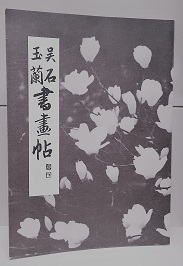 吳石
玉蘭
書畫帖